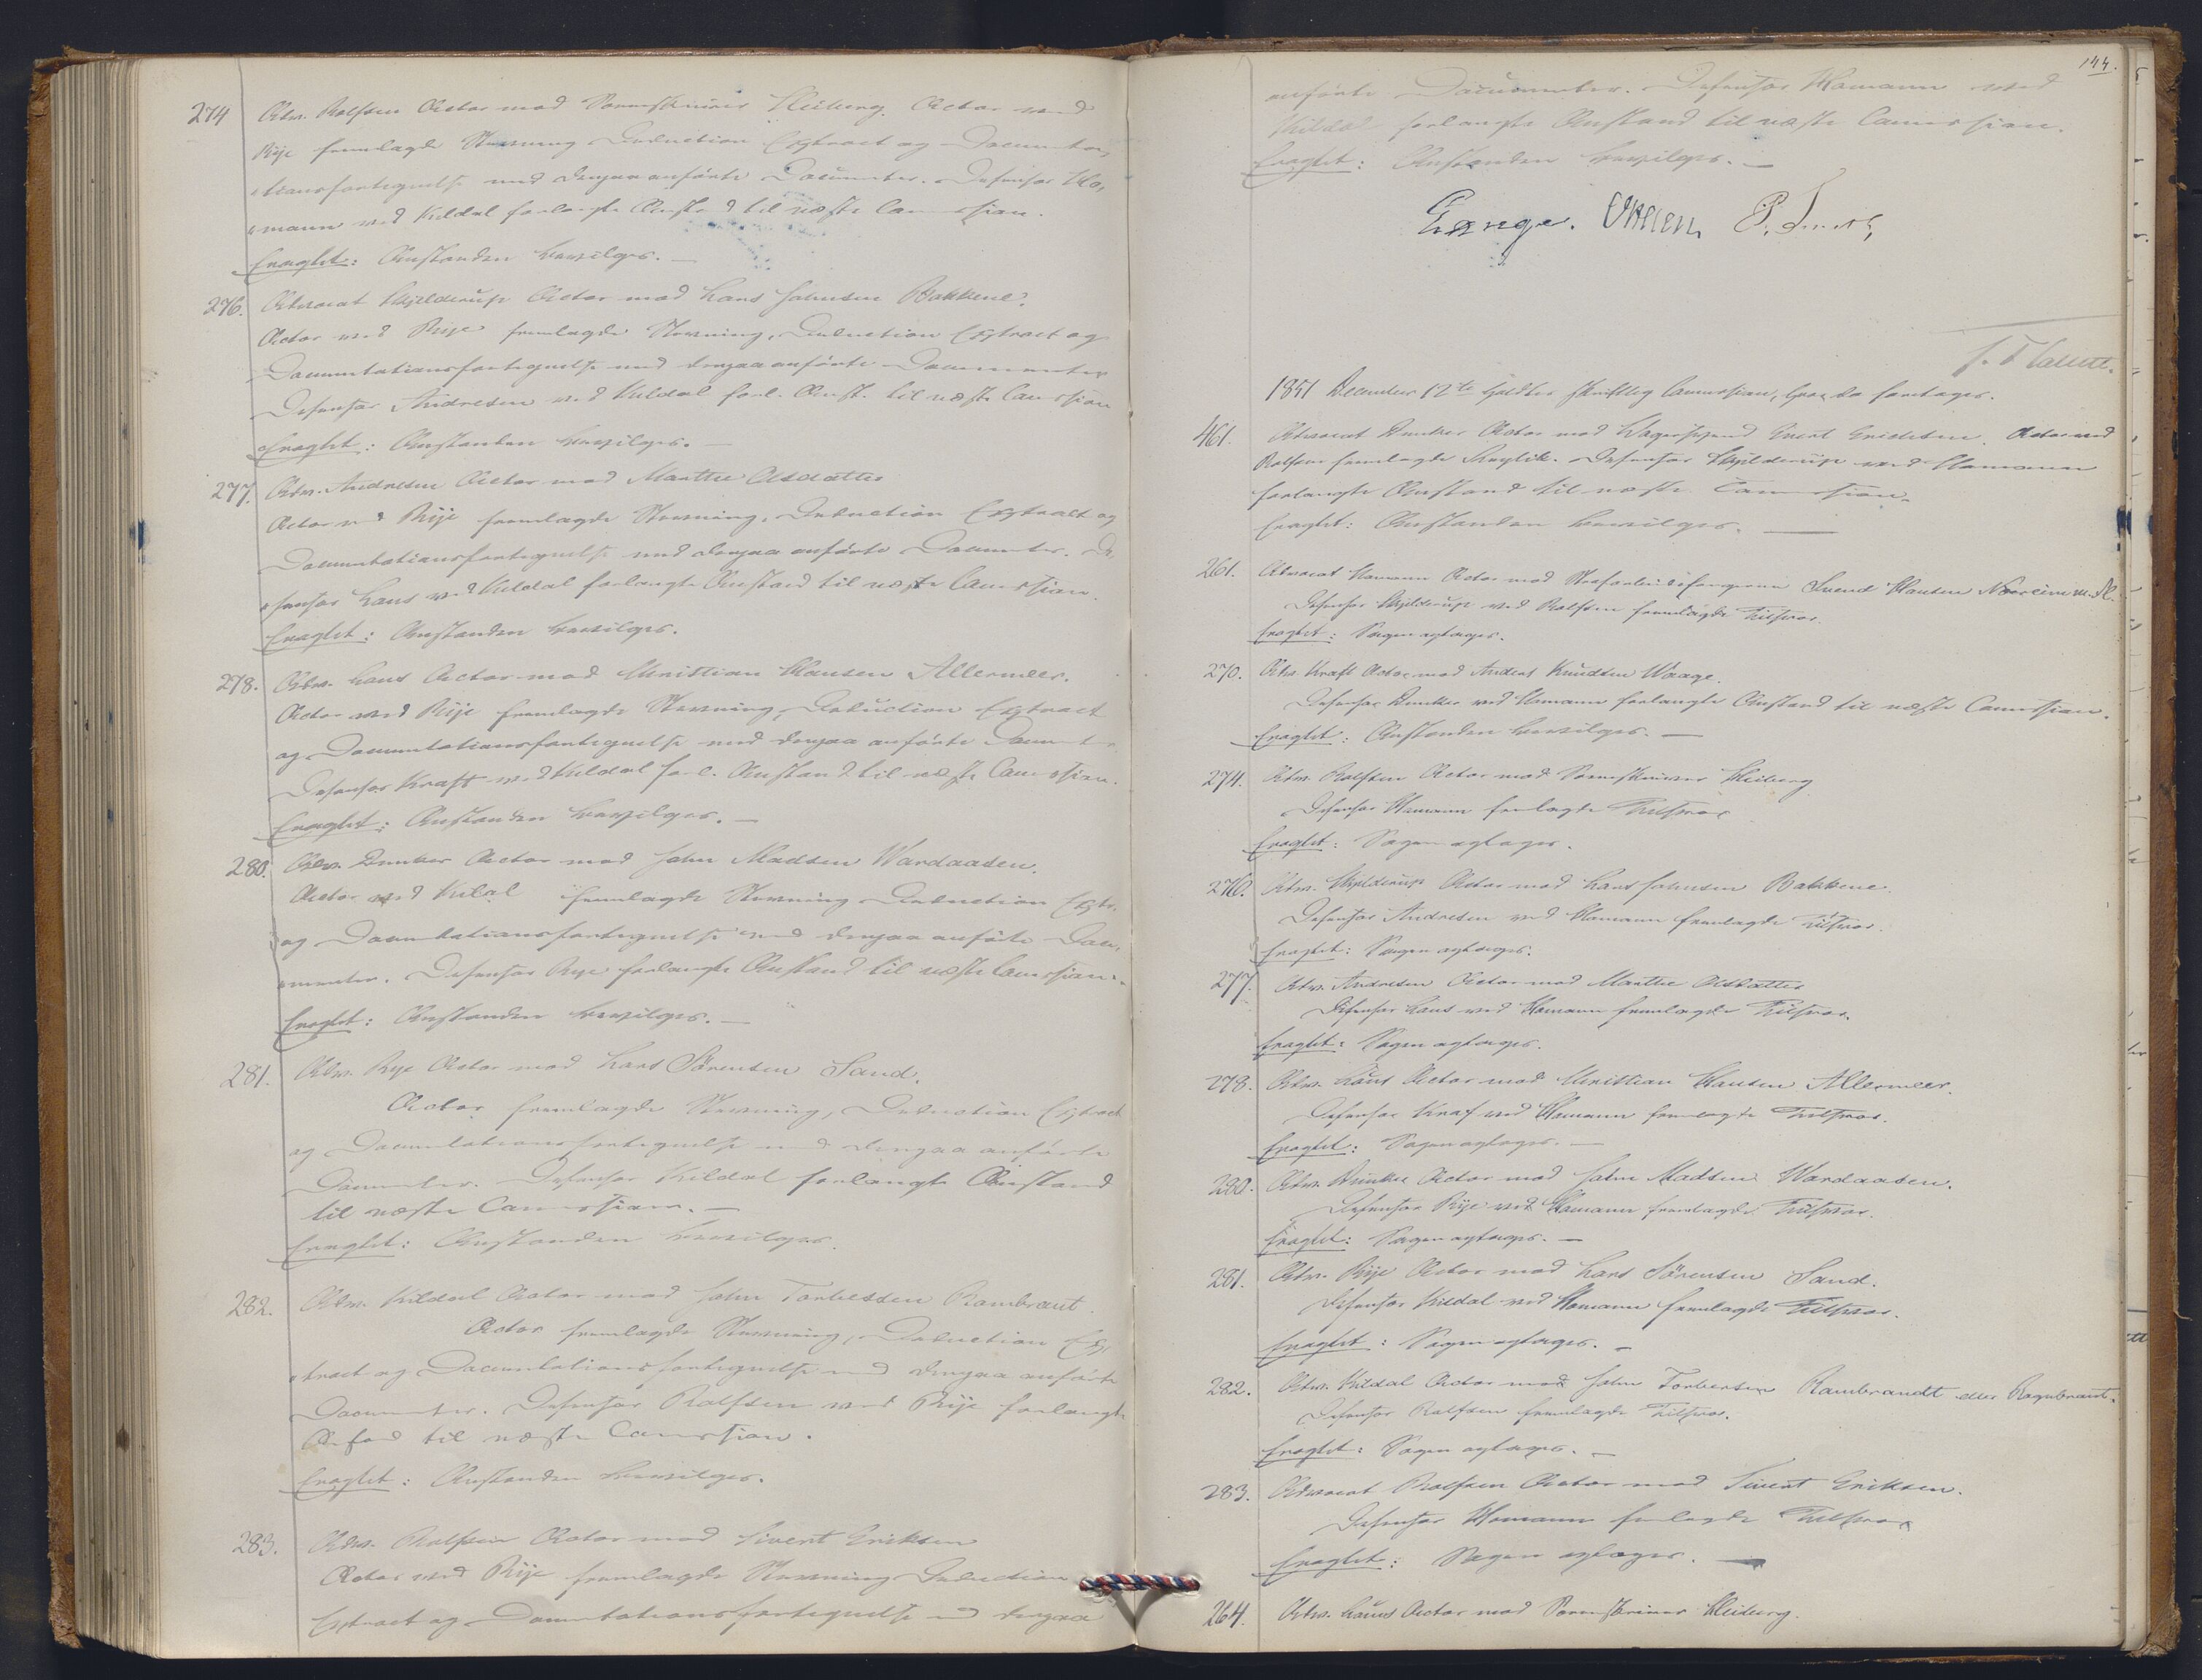 274 Adv. Rolfsen Actor mod Sorenskriver Heiberg. Actor ved
Rije fremlagde Stevning Deduction Extract og Documen-
tationsfortegnelse med derpaa anførte Documenter. Defensor Ho-
mann ved Kildal forlangte Anstand til næste Camission.
Eragtet: Anstanden bevilges. —
276. Advocat Hjelderup Actor mod Lars Johnsen Bakkene.
Actor ved Rije fremlagde Stevning, Deduction Extract og
Documentationsfortegnelse med derpaa anførte Documenter
Defensor Andresen ved Kildal forl. Anst. til næste Camission
Eragtet: Anstanden bevilges. —
277. Adv. Andresen Actor mod Marthe Olsdatter
Actor ved Rije fremlagde Stevning, Deduction Extract og
Documentationsfortegnelse med derpaa anførte Documenter. De-
fensor Lous ved Kildal forlangte Anstand til næste Camission.
Eragtet: Anstanden bevilges.
278. Adv. Lous Actor mod Christian Hansen Allermeer.
Actor ved Rije fremlagde Stevning, Deduction Extract
og Documentationsfortegnelse med derpaa anførte Documenter
Defensor Kraft ved Kildal forl. Anstand til næste Camission.
Eragtet: Anstanden bevilges. —
280. Adv. Dunker Actor mod John Madsen Wardaasen.
Actor ved Kildal fremlagde Stevning Deduction Extr.
og Documentationsfortegnelse med derpaa anførte Docu-
menter. Defensor Rye forlangte Anstand til næste Camission.
Eragtet: Anstanden bevilges. —
281. Adv. Rye Actor mod Lars Sørensen Sand.
Actor fremlagde Stevning, Deduction Extract
og Documentationsfortegnelse med derpaa anførte
Documenter. Defensor Kildal forlangte Anstand
til næste Camission. —
Eragtet: Anstanden bevilges.
282. Adv. Kildal Actor mod John Torbersen Rambraut.
Actor fremlagde Stevning, Deduction Ex-
tract og Documentationsfortegnelse med derpaa anførte
Documenter. Defensor Rolfsen ved Rije forlangte
til næste Camission.
Eragtet: Anstanden bevilges.
283. Adv. Rolfsen Actor mod Sivert Eriksen
Actor ved Rije fremlagde Stevning Deduction
Extract og Documentationsfortegnelse med derpaa
144.
anførte Documenter. Defensor Homann ved
Kildal forlangte Anstand til næste Camission.
Eragtet: Anstanden bevilges. —
1851 December 12te holdtes skriftlig Camission, hvor da foretages.
461. Advocat Dunker Actor mod Evert Erichsen. Actor ved
Rolfsen fremlagde Replik. Defensor Hjelderup ved Homann
forlangte Anstand til næste Camission.
Eragtet: Anstanden bevilges. —
261. Advocat Homann Actor mod Strafarbeidsfangerne Svend Hansen m. Fl.
Defensor Hjelderup ved Rolfsen fremlagde Tilsvar.
Eragtet: Sagen optages.
270. Adv. Kraft Actor mod Anders Knudsen Waage.
Defensor Dunker ved Homann forlangte Anstand til næste Camission.
Eragtet: Anstanden bevilges. —
274. Adv. Rolfsen Actor mod Sorenskriver Heiberg
Defensor Homann fremlagde Tilsvar
Eragtet: Sagen optages.
276. Adv. Hjelderup Actor mod Lars Johnsen Bakkene.
Defensor Andresen ved Homann fremlagde Tilsvar.
Eragtet: Sagen optages.
277. Adv. Andresen Actor mod Marthe Olsdatter
Defensor Lous ved Homann fremlagde Tilsvar.
Eragtet: Sagen optages.
278. Adv. Lous Actor mod Christian Hansen Allermeer.
Defensor Kraft ved Homann fremlagde Tilsvar.
Eragtet: Sagen optages. —
280. Adv. Dunker Actor mod John Madsen Wardaasen.
Defensor Rije ved Homann fremlagde Tilsvar.
Eragtet: Sagen optages. —
281. Adv. Rije Actor mod Lars Sørensen Sand.
Defensor Kildal ved Homann fremlagde Tilsvar.
Eragtet: Sagen optages. —
282. Adv. Kildal Actor mod John Torbersen Rambrandt eller Ragnbraut.
Defensor Rolfsen fremlagde Tilsvar.
Eragtet: Sagen optages. —
283. Advocat Rolfsen Actor mod Sivert Eriksen.
Defensor Homann fremlagde Tilsvar
Eragtet: Sagen optages. —
264. Adv. Lous Actor mod Sorenskriver Heiberg.